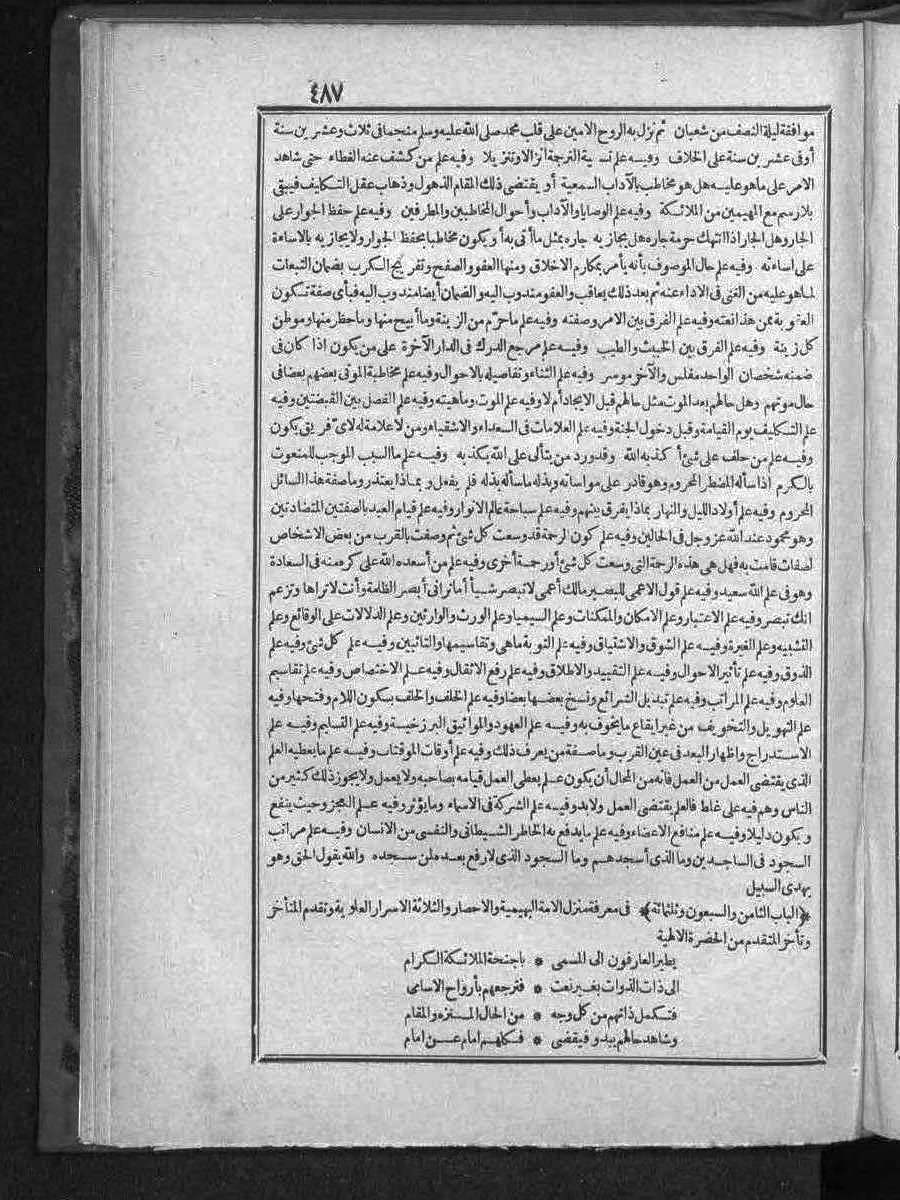 ٤٨٧
موافقة ليلة النصف من شعبان ثم نزل به الروح الامين على قلب محمد صلى الله عليه وسلم منجما فى ثلاث وعشرين سنة
أو فى عشرين سنة على الخلاف وفيه علم تسمية الترجمة انزالا وتنزيلا وفيه علم من كشف عنه الغطاء حتى شاهد
الامر على ما هو عليه هل هو مخاطب بالآداب السمعية أو يقتضى ذلك المقام الذهول وذهاب عقل التكليف فيبقى
بلا رسم مع المهيمين من الملائكة وفيه علم الوصايا والآداب وأحوال المخاطبين والمطرفين وفيه علم حفظ الجوار على
الجار وهل الجار اذا انتهك حرمة جاره هل يجازيه جاره بمثل ما أتى به أو يكون مخاطبا بحفظ الجوار ولا يجازيه بالاساءة
على اساءته وفيه علم حال الموصوف بأنه يأمر بمكارم الاخلاق ومنها العفو والصفح وتفريج الكرب بضمان التبعات
لما هو عليه من الغنى فى الاداء عنه ثم بعد ذلك يعاقب والعفو مندوب اليه والضمان أيضا مندوب اليه فبأى صفة تكون
العقوبة ممن هذا نعته وفيه علم الفرق بين الامر وصفته وفيه علم ما حرّم من الزينة وما أبيح منها وما حظر منها وموطن
كل زينة وفيه علم الفرق بين الخبيث والطيب وفيه علم مرجع الدرك فى الدار الآخرة على من يكون اذا كان فى
ضمنه شخصان الواحد مفلس والآخر موسر وفيه علم الثناء وتفاصيله بالاحوال وفيه علم مخاطبة الموتى بعضهم بعضا فى
حال موتهم وهل حالهم بعد الموت مثل حالهم قبل الايجاد أم لا وفيه علم الموت وماهيته وفيه علم الفصل بين القبضتين وفيه
علم التكليف يوم القيامة وقبل دخول الجنة وفيه علم العلامات فى السعداء والاشقياء ومن لا علامة له لاىّ فريق يكون
وفيه علم من حلف على شئ أكذبه الله وقد ورد من يتألى على الله يكذبه وفيه علم ما السبب الموجب للمنعوت
بالكرم اذا سأله المضطر المحروم وهو قادر على مواساته وبذله ما سأله بذله فلم يفعل وبماذا يعتذر وما صفة هذا السائل
المحروم وفيه علم أولاد الليل والنهار بماذا يفرق بينهم وفيه علم سباحة عالم الانوار وفيه علم قيام العبد بالصفتين المتضادتين
وهو محمود عند الله عز وجل فى الحالين وفيه علم كون الرحمة قد وسعت كل شئ ثم وصفت بالقرب من بعض الاشخاص
لصفات قامت به فهل هى هذه الرحمة التى وسعت كل شئ أو رحمة أخرى وفيه علم من أسعده الله على كره منه فى السعادة
وهو فى علم الله سعيد وفيه علم قول الاعمى للبصير مالك أعمى لا تبصر شيأ أما ترانى أبصر الظلمة وأنت لا تراها وتزعم
انك تبصر وفيه علم الاعتبار وعلم الامكان والممكنات وعلم السيميا وعلم الورث والوارثين وعلم الدلالات على الوقائع وعلم
التشبيه وعلم الغيرة وفيه علم الشوق والاشتياق وفيه علم التوبة ماهى وتقاسيمها والتائبين وفيه علم كل شئ وفيه علم
الذوق وفيه علم تأثير الاحوال وفيه علم التقييد والاطلاق وفيه علم رفع الاثقال وفيه علم الاختصاص وفيه علم تقاسيم
العلوم وفيه علم المراتب وفيه علم تبديل الشرائع ونسخ بعضها بعضا وفيه علم الخلف والخلف بسكون اللام وفتحها وفيه
علم التهويل والتخويف من غير ايقاع ما يخوف به وفيه علم العهود والمواثيق البرزخية وفيه علم التسليم وفيه علم
الاستدراج واظهار البعد فى عين القرب وما صفة من يعرف ذلك وفيه علم أوقات الموقتات وفيه علم ما يعطيه العلم
الذى يقتضى العمل من العمل فانه من المحال أن يكون علم يعطى العمل قيامه بصاحبه ولا يعمل ولا يجوز ذلك كثير من
الناس وهم فيه على غلط فالعلم يقتضى العمل ولا بد وفيه علم الشركة فى الاسماء وما يؤثر وفيه علم العجز وحيث ينفع
ويكون دليلا وفيه علم منافع الاعضاء وفيه علم ما يدفع به الخاطر الشيطانى والنفسى من الانسان وفيه علم مراتب
السجود فى الساجدين وما الذى أسجدهم وما السجود الذى لا رفع بعده لمن سجده والله يقول الحق وهو
يهدى السبيل
﴿الباب الثامن والسبعون وثلثمائة﴾ فى معرفة منزل الامة البهيمية والاحصار والثلاثة الاسرار العلوية وتقدم المتأخر
وتأخر المتقدم من الحضرة الالهية
يطير العارفون الى المسمى * باجنحة الملائكة الكرام
الى ذات الذوات بغير نعت * فترجعهم بأرواح الاسامى
فتكمل ذاتهم من كل وجه * من الحال المنزه والمقام
وشاهد حالهم يبدو فيقضى * فكلهم امام عن امام